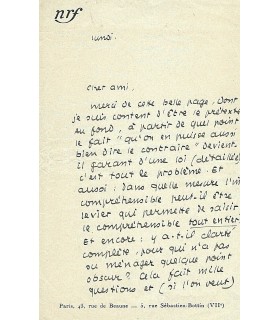 nrf
lundi.
cher ami,
merci de cette belle page. Dont
je suis content d'être le prétexte
au fond, à partir de quel point
le fait "qu'on en puisse aussi
bien dire le contraire" devient-
il garant d'une loi (détaillée)
c'est tout le problème. Et
aussi : Dans quelle mesure l'in
compréhensible peut-il être
levier qui permette de saisir
le compréhensible tout entier.
Et encore : y a-t-il clarté
complète, pour qui n'a pas
su ménager quelque point
obscur? Cela fait mille
questions et (si l'on veut)
Paris, 43, rue de Beaune — 5, rue Sébastien-Bottin (VIIe)